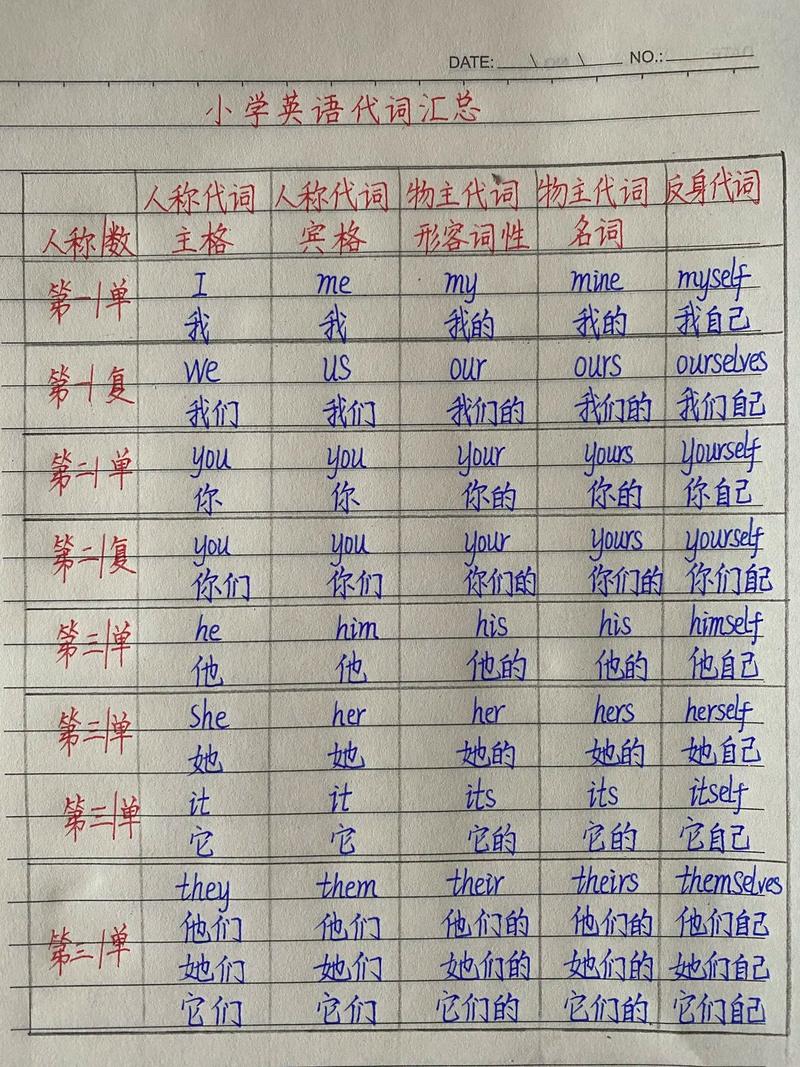 DATE: \ \ NO.:
小学英语代词汇总
人称代词 人称代词 物主代词 物主代词 反身代词
人称|数 主格 宾格 形容词性 名词
第一|单 I me my mine myself
我 我 我的 我的 我自己
第一|复 we us our ours ourselves
我们 我们 我们的 我们的 我们自己
第二|单 you you your yours yourself
你 你 你的 你的 你自己
第二|复 you you your yours yourself
你们 你们 你们的 你们的 你们自己
第三|单 he him his his himself
他 他 他的 他的 他自己
第三|单 She her her hers herself
她 她 她的 她的 她自己
第三|单 it it its its itself
它 它 它的 它的 它自己
they them their theirs themselves
他们 他们 他们的 他们的 他们自己
第三|单 她们 她们 她们的 她们的 她们自己
它们 它们 它们的 它们的 它们自己